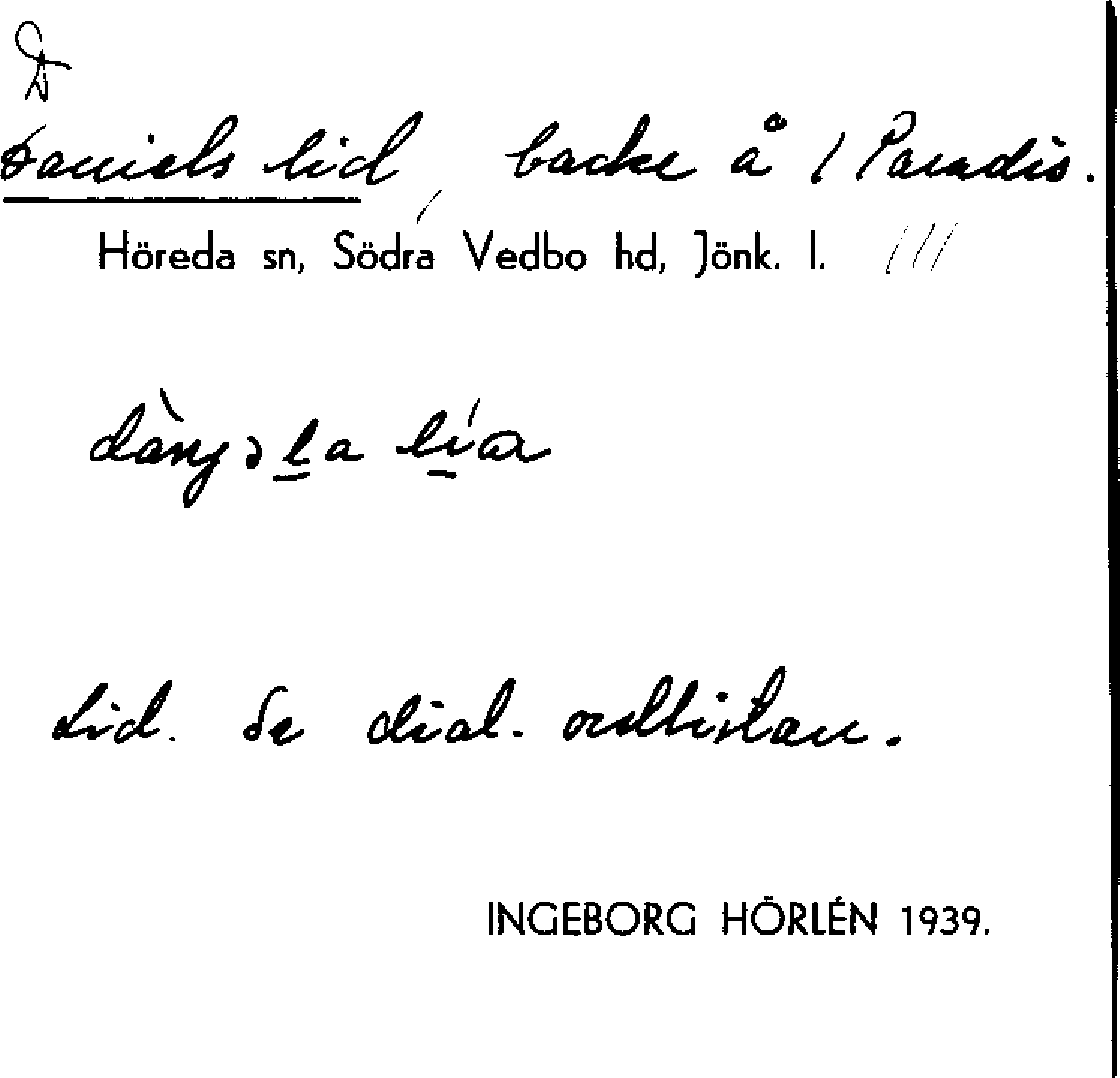 D
Daniels lid, backe å 1 Paradis.
Höreda sn, Södra Vedbo hd, Jönk. l.
Lid. Se dial. ordlistan.
INGEBORG HÖRLÉN 1939.